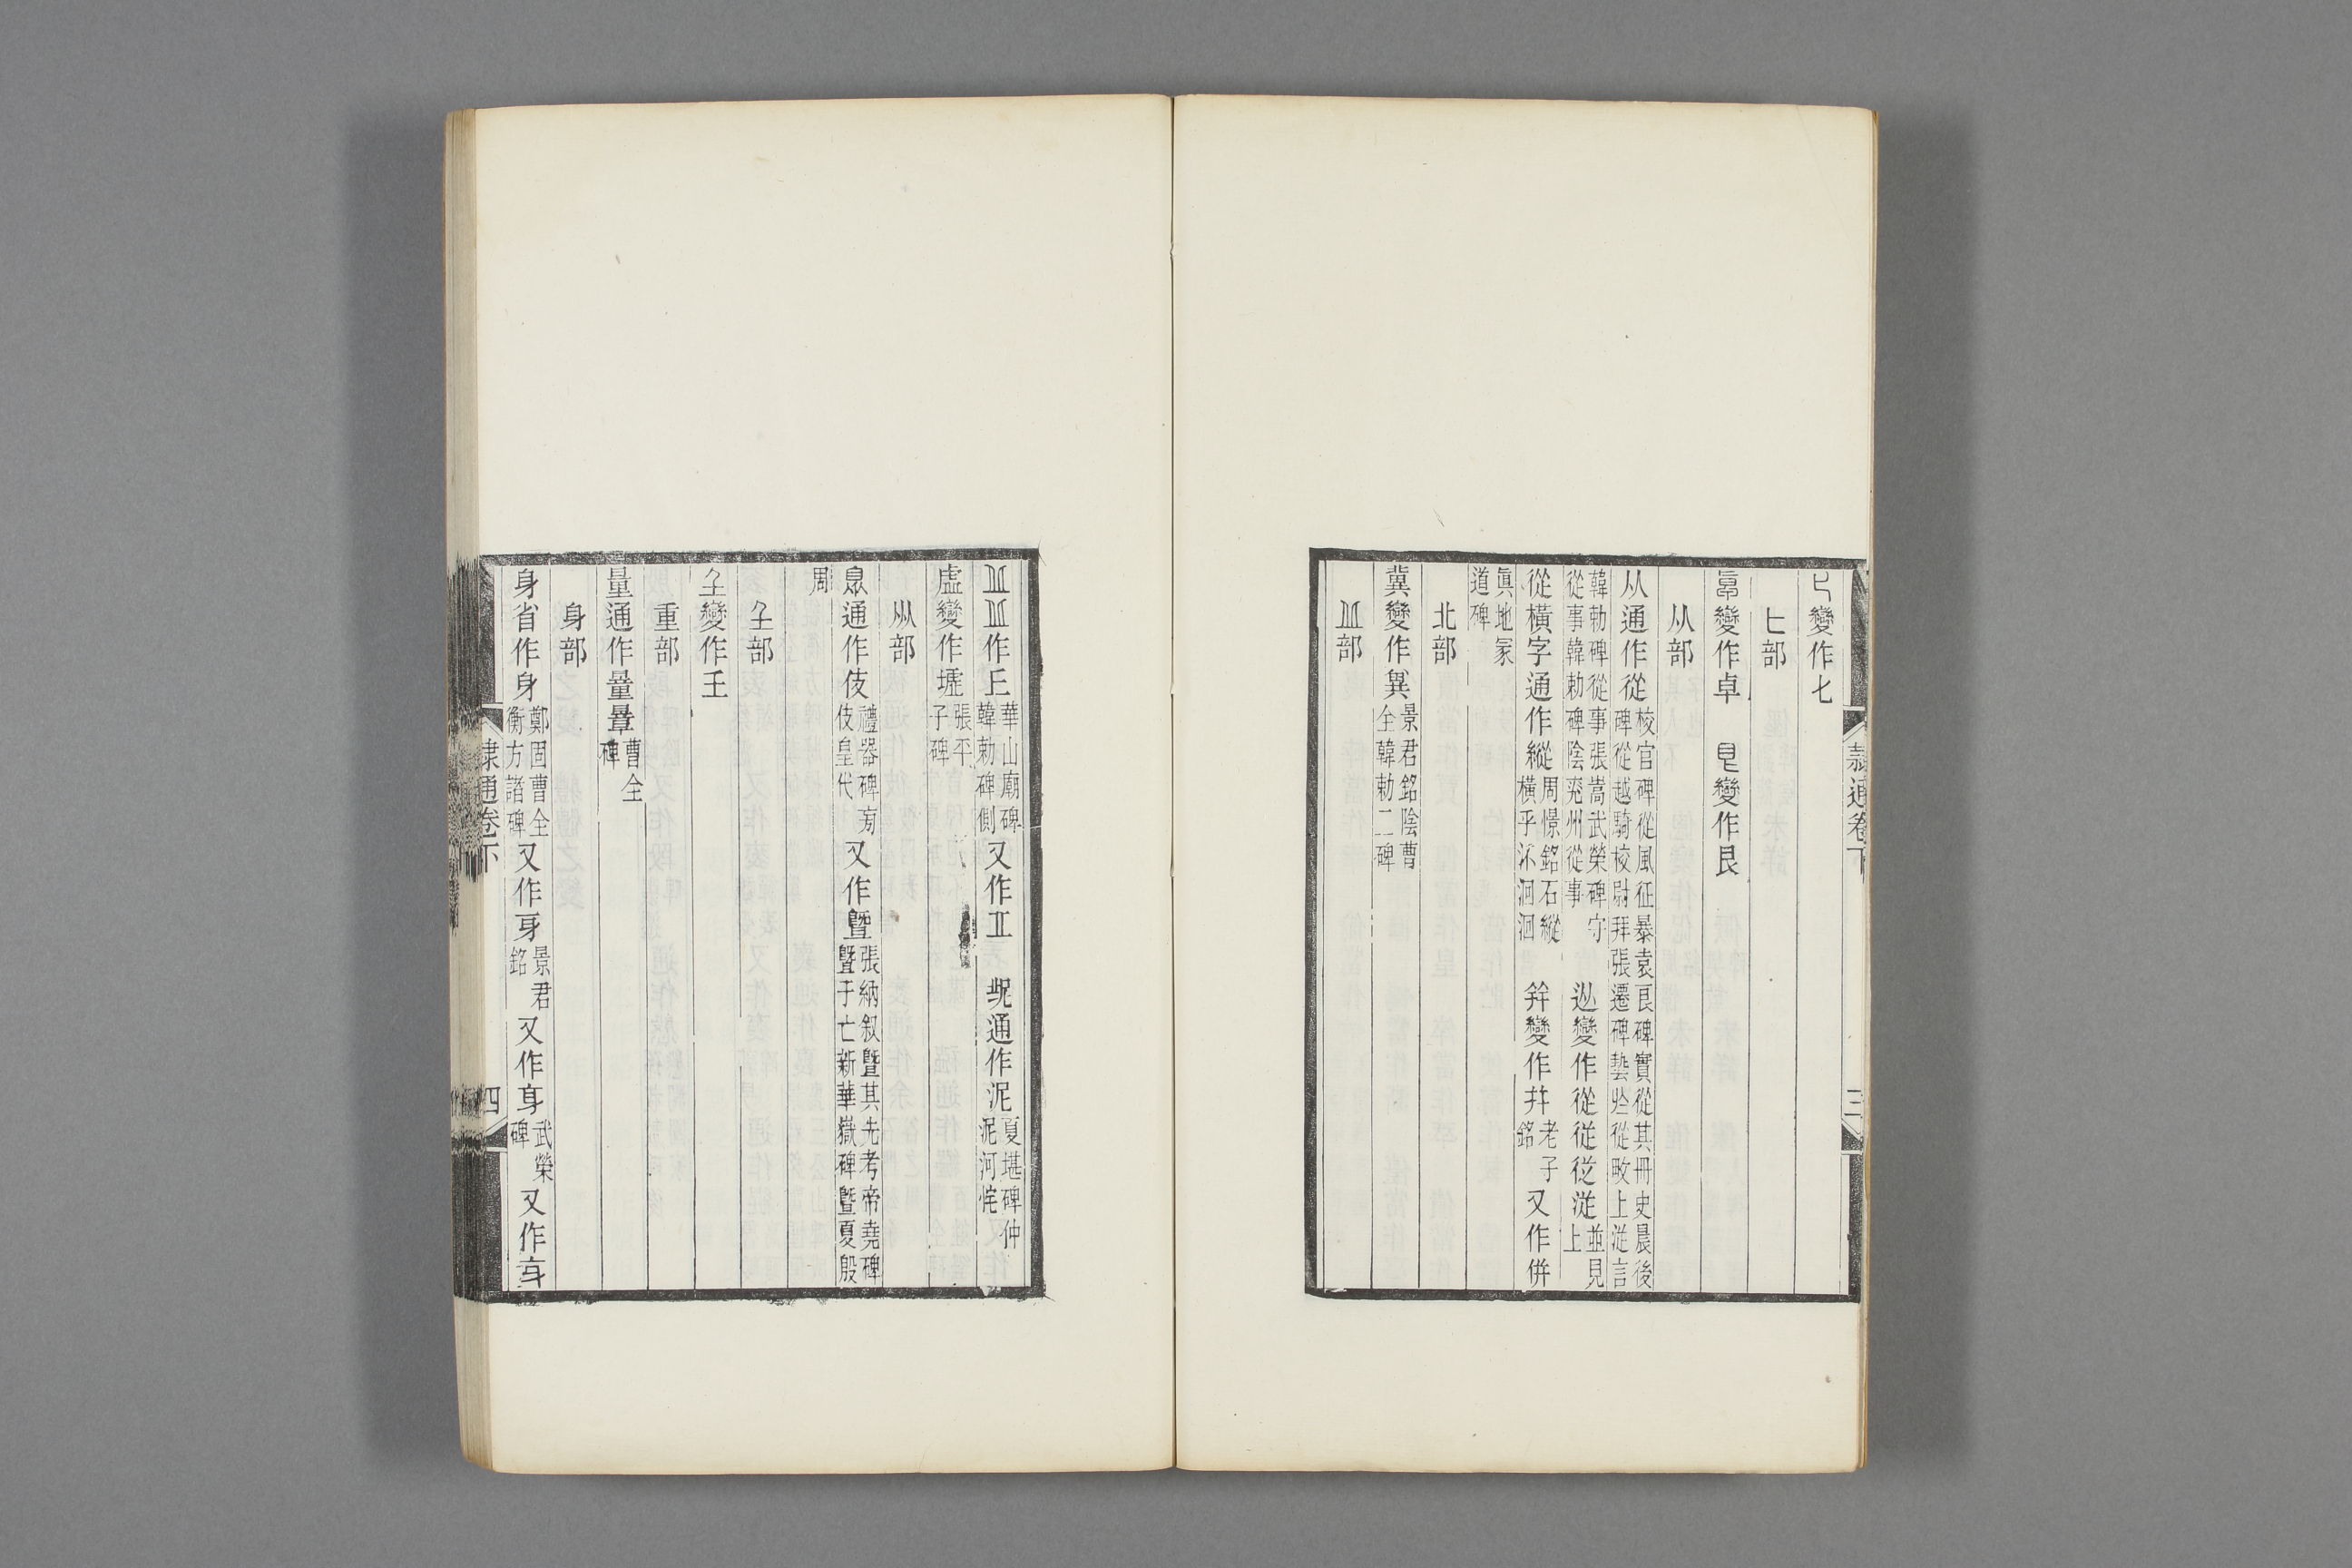 變作七
匕部
變作卓　皀變作艮
从部
从通作從校官碑從風征暴袁良碑實從其冊史晨後碑從越騎校尉拜張遷碑從畋上從言
韓勅碑從事張嵩武榮碑守從事韓勅碑陰兖州從事　變作從從從從並見上
從橫字通作縱周憬銘石縱橫乎泝洄洄　變作并老子銘又作併
眞地冢道碑
北部
冀變作兾景君銘陰曹全韓勅二碑
丠部
丠丠作丘華山廟碑韓勅碑側又作丠　通作泥夏堪碑仲泥河侘
虛變作墟張平子碑
㐺部
息通作伎禮器碑旁伎皇代又作曁張納叙曁其先考帝堯碑曁于亡新華嶽碑曁夏殷
周
𡈼部
𡈼變作王
重部
量通作量曹全碑
身部
身省作身鄭固曹全衡方諸碑又作身景君銘又作身武榮碑又作身
隷通卷下
三
隷通卷下
四